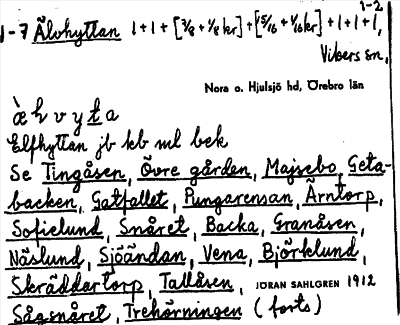 1-2
1-7 Älvhyttan 1+1+[3/8+1/8 kr]+[15/16+1/16 kr]+1+1+1,
Vibers sn,
Nora o. Hjulsjö hd, Örebro län
ὰ h v y t a
Elfhyttan jb kb ml bek
Se Tingåsen, Övre gården, Majsebo, Geta-
backen, Gatfallet, Pungarensan, Ärntorp,
Sofielund, Snåret, Backa, Granåsen,
Näslund, Sjöändan, Vena, Björklund,
Skräddartorp, Tallåsen, JÖRAN SAHLGREN 1912
Sågsnåret, Trehörningen (forts)